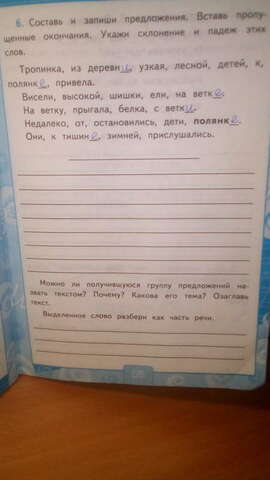 6. Составь и запиши предложения. Вставь пропу-
щенные окончания. Укажи склонение и падеж этих
слов.
Тропинка, из деревни, узкая, лесной, детей, к,
полянке, привела.
Висели, высокой, шишки, ели, на ветке.
На ветку, прыгала, белка, с ветки.
Недалеко, от, остановились, дети, полянке.
Они, к тишине, зимней, прислушались.
Можно ли получившуюся группу предложений на-
звать текстом? Почему? Какова его тема? Озаглавь
текст.
Выделенное слово разбери как часть речи.